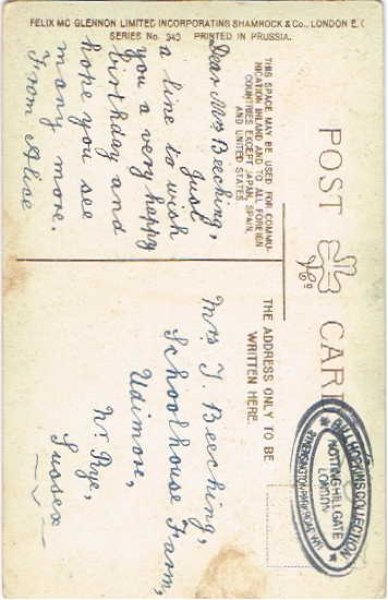 FELIX MC GLENNON LIMITED INCORPORATING SHAMROCK & Co., LONDON E.C
SERIES No. 343 PRINTED IN PRUSSIA.
POST CARD
THIS SPACE MAY BE USED FOR COMMU-
NICATION INLAND AND TO ALL FOREIGN
COUNTRIES EXCEPT JAPAN, SPAIN,
AND UNITED STATES
Dear Mrs Beeching,
Just
a line to wish
you a very happy
birthday and
hope you see
many more.
From Alice
THE ADDRESS ONLY TO BE
WRITTEN HERE.
Mrs J. Beeching,
Schoolhouse Farm,
Udimore,
Nr. Rye,
Sussex
BILL HOPKINS COLLECTION
NOTTING HILL GATE
LONDON
KENSINGTON PARK ROAD. W11